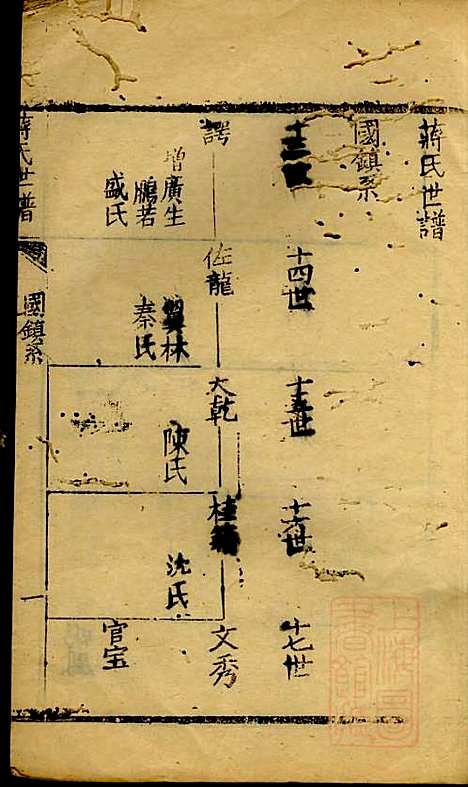 蔣氏世譜
國鎮系
十三世
十四世
十五世
十六世
十七世
諤
佐龍
大乾
桂
文秀
增廣生
鵬若
盛氏
翼林
秦氏
陳氏
沈氏
官宝
蔣氏世譜
國鎮系
一